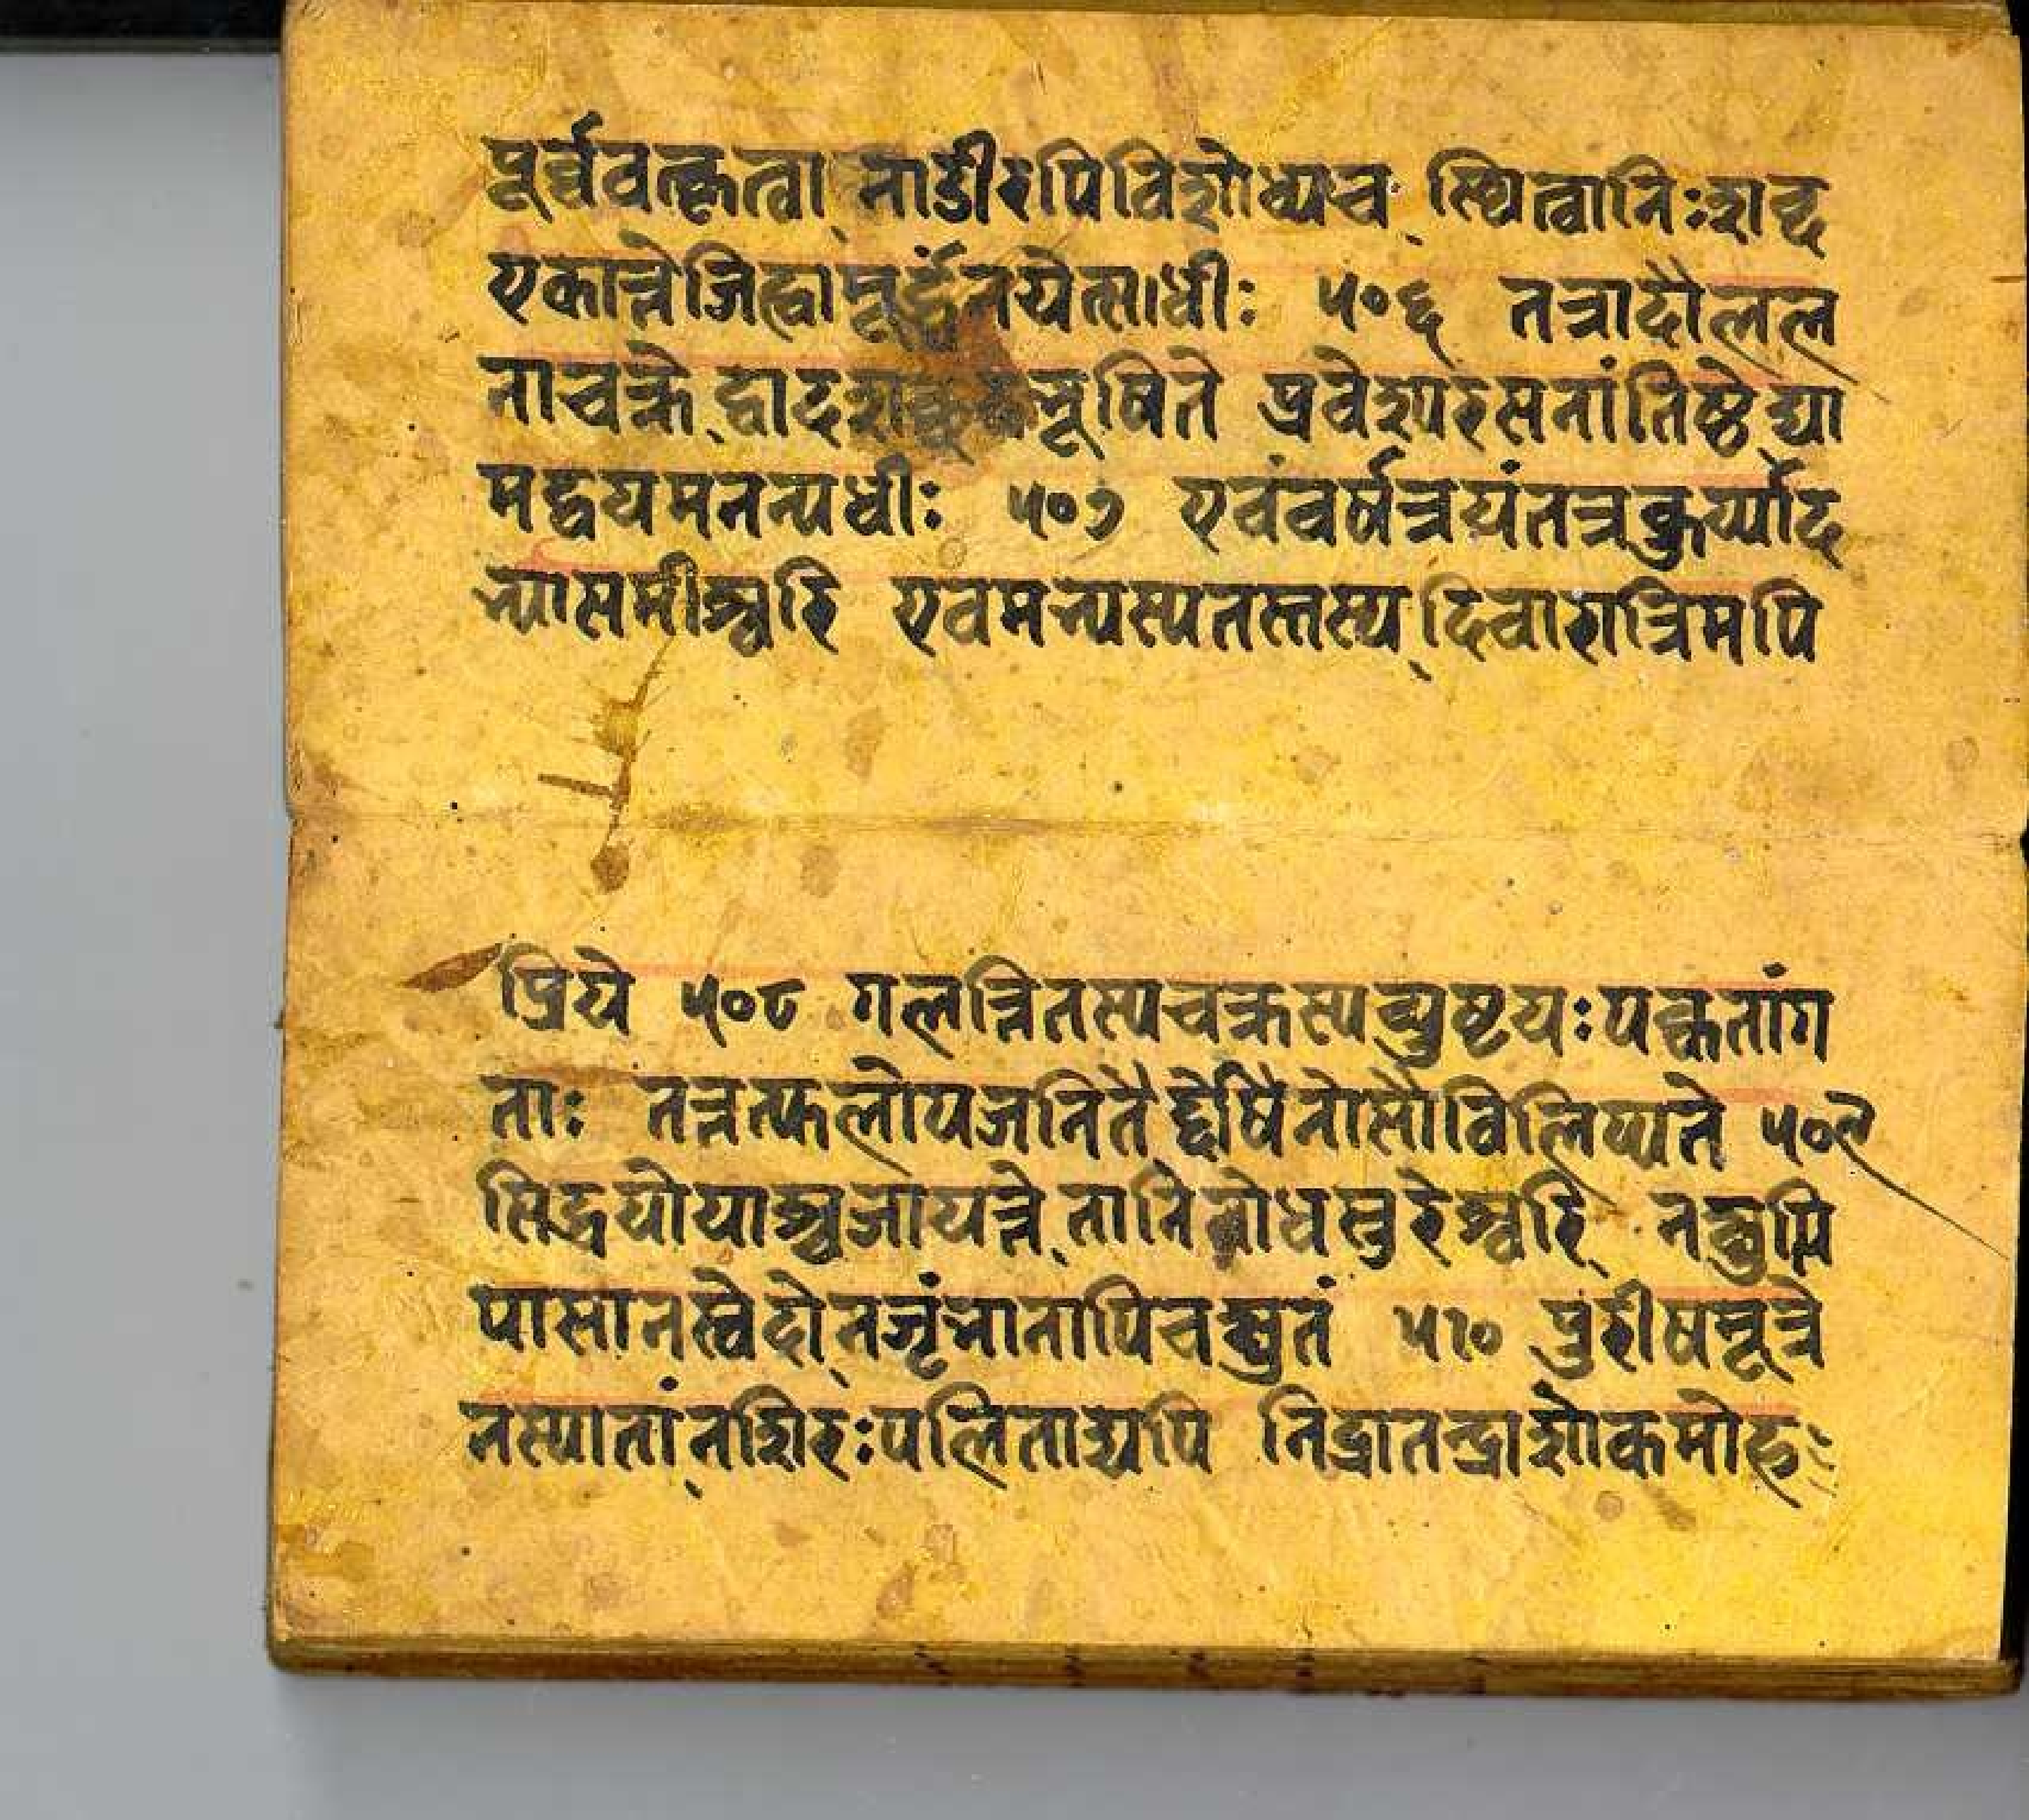 पूर्व्ववत्कृत्वा नाडीरपिविशोध्यच स्थित्वानिःशब्द
एकान्तेजिह्वामूर्द्ध्वंनयेत्साधीः ५०६ तत्रादौलल
नाचक्रे द्वादशा भूषिते प्रवेश्यरसनांतिष्ठेद्या
मद्वयमनन्यधीः ५०७ एवंवर्षत्रयंतत्रकुर्य्याद
भ्यासमीश्वरि एवमभ्यस्यतस्तस्य दिवारात्रिमपि
प्रिये ५०८ गलन्तितस्यचक्रस्यव्युष्टयःपक्वतांग
ताः तत्रत्फलोपजनितैर्द्दोषैर्नासौविलिप्यते ५०९
सिद्धयोयाश्चजायन्ते तानिबोधसुरेश्वरि नक्षुत्पि
पासानस्वेदो नजृंभानापिचक्षुतं ५१० पुरीषमूत्रे
नस्यातां नशिरःपलिताद्यपि निद्रातन्द्राशोकमोह